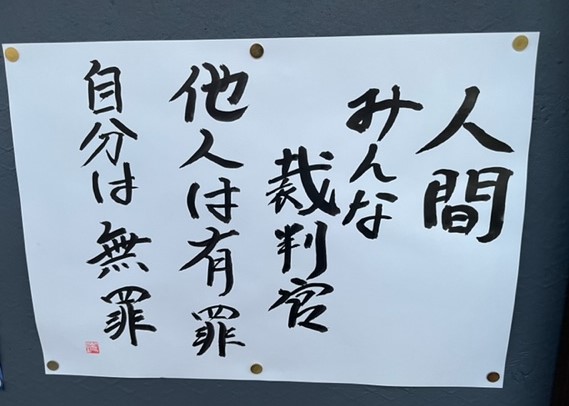 人間
みんな
裁判官
他人は有罪
自分は無罪